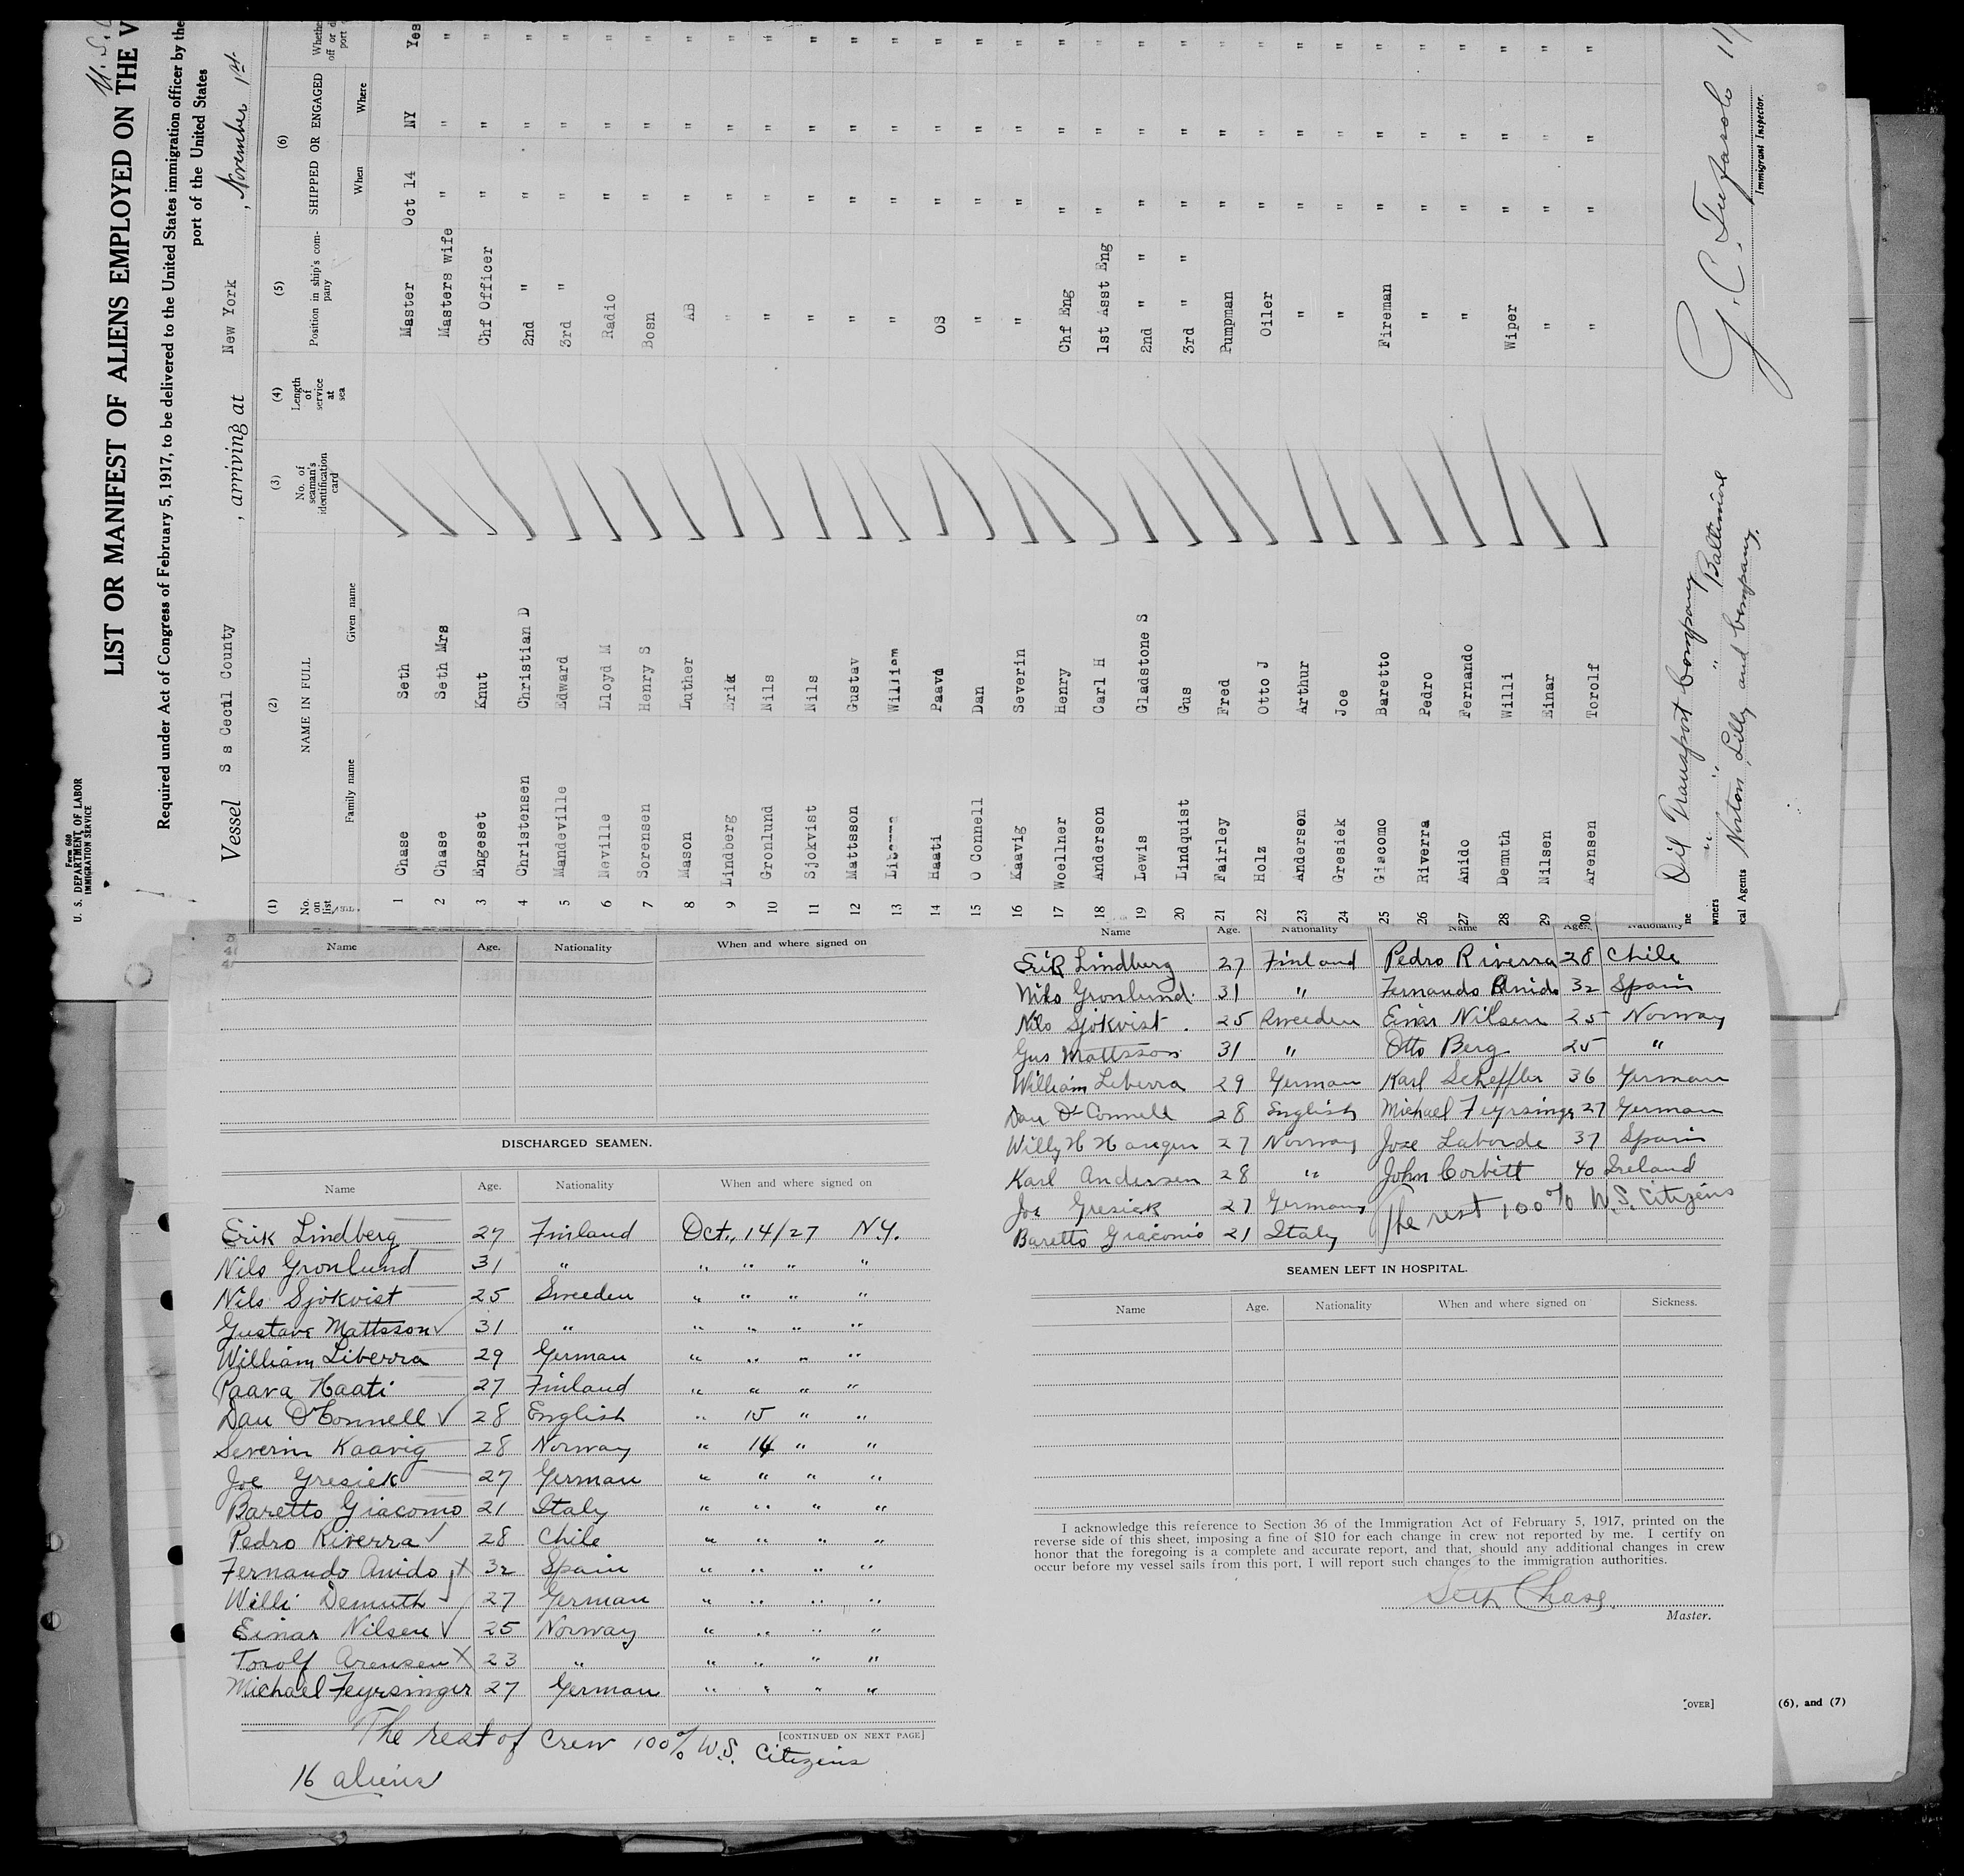 Form 680
U. S. DEPARTMENT OF LABOR
IMMIGRATION SERVICE
U. S.
LIST OR MANIFEST OF ALIENS EMPLOYED ON THE V
Required under Act of Congress of February 5, 1917, to be delivered to the United States immigration officer by the
port of the United States
Vessel S s Cecil County , arriving at New York , November 1st
(1) (2) (3) (4) (5) (6)
No. on list NAME IN FULL No. of seaman's identification card Length of service at sea Position in ship's company SHIPPED OR ENGAGED
Family name Given name When Where
1 Chase Seth Master Oct 14 NY Yes
2 Chase Seth Mrs Masters wife " " "
3 Engeset Knut Chf Officer " " "
4 Christensen Christian D 2nd " " " "
5 Mandeville Edward 3rd " " " "
6 Neville Lloyd M Radio " " "
7 Sorensen Henry S Bosn " " "
8 Mason Luther AB " " "
9 Lindberg Erik " " " "
10 Gronlund Nils " " " "
11 Sjokvist Nils " " " "
12 Mattsson Gustav " " " "
13 William " " " "
14 Haati Paavo OS " " "
15 O Connell Dan " " " "
16 Kaavig Severin " " " "
17 Woellner Henry Chf Eng " " "
18 Anderson Carl H 1st Asst Eng " " "
19 Lewis Gladstone S 2nd " " " " "
20 Lindquist Gus 3rd " " " " "
21 Fairley Fred Pumpman " " "
22 Holz Otto J Oiler " " "
23 Andersen Arthur " " " "
24 Gresiek Joe " " " "
25 Giacomo Baretto Fireman " " "
26 Riverra Pedro " " " "
27 Anido Fernando " " " "
28 Demuth Willi Wiper " " "
29 Nilsen Einar " " " "
30 Arensen Torolf " " " "
Oil Transport Company
wners " " " Baltimore
cal Agents Norton, Lilly and Company.
Immigrant Inspector.
Name Age. Nationality When and where signed on
DISCHARGED SEAMEN.
Name Age. Nationality When and where signed on
Erik Lindberg 27 Finland Oct., 14/27 N.Y.
Nils Gronlund 31 " " " " "
Nils Sjokvist 25 Sweeden " " " "
Gustave Mattsson 31 " " " " "
William Liberra 29 German " " " "
Paava Haati 27 Finland " " " "
Dan O'Connell 28 English " 15 " "
Severin Kaavig 28 Norway " 14 " "
Joe Gresiek 27 German " " " "
Baretto Giacomo 21 Italy " " " "
Pedro Riverra 28 Chile " " " "
Fernando Anido 32 Spain " " " "
Willi Demuth 27 German " " " "
Einar Nilsen 25 Norway " " " "
Torolf Arensen 23 " " " " "
Michael Feyrsinger 27 German " " " "
[CONTINUED ON NEXT PAGE]
The rest of crew 100% U.S. Citizens
16 aliens
Name Age. Nationality Name Age. Nationality
Erik Lindberg 27 Finland Pedro Riverra 28 Chile
Nils Gronlund 31 " Fernando Anido 32 Spain
Nils Sjokvist 25 Sweeden Einar Nilsen 25 Norway
Gus Mattsson 31 " Otto Berg 25 "
William Liberra 29 German Karl Scheffler 36 German
Dan O'Connell 28 English Michael Feyrsinger 27 German
Willy H Haugen 27 Norway Jose Laborde 37 Spain
Karl Andersen 28 " John Corbitt 40 Ireland
Joe Gresiek 27 Germany The rest 100% U.S. Citizens
Baretto Giacomo 21 Italy
SEAMEN LEFT IN HOSPITAL.
Name Age. Nationality When and where signed on Sickness.
I acknowledge this reference to Section 36 of the Immigration Act of February 5, 1917, printed on the
reverse side of this sheet, imposing a fine of $10 for each change in crew not reported by me. I certify on
honor that the foregoing is a complete and accurate report, and that, should any additional changes in crew
occur before my vessel sails from this port, I will report such changes to the immigration authorities.
Seth Chase
Master.
[OVER]
(6), and (7)